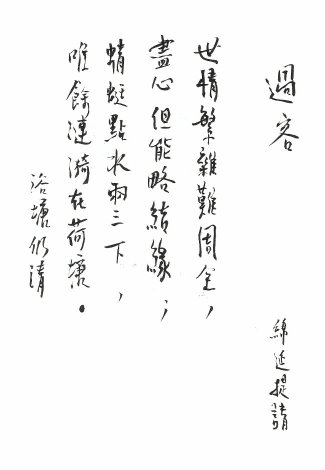 過客
綿延提請
世情繁雜難周全，
盡心但能略結緣；
蜻蜓點水兩三下，
唯餘漣漪在荷塘。
塘仍